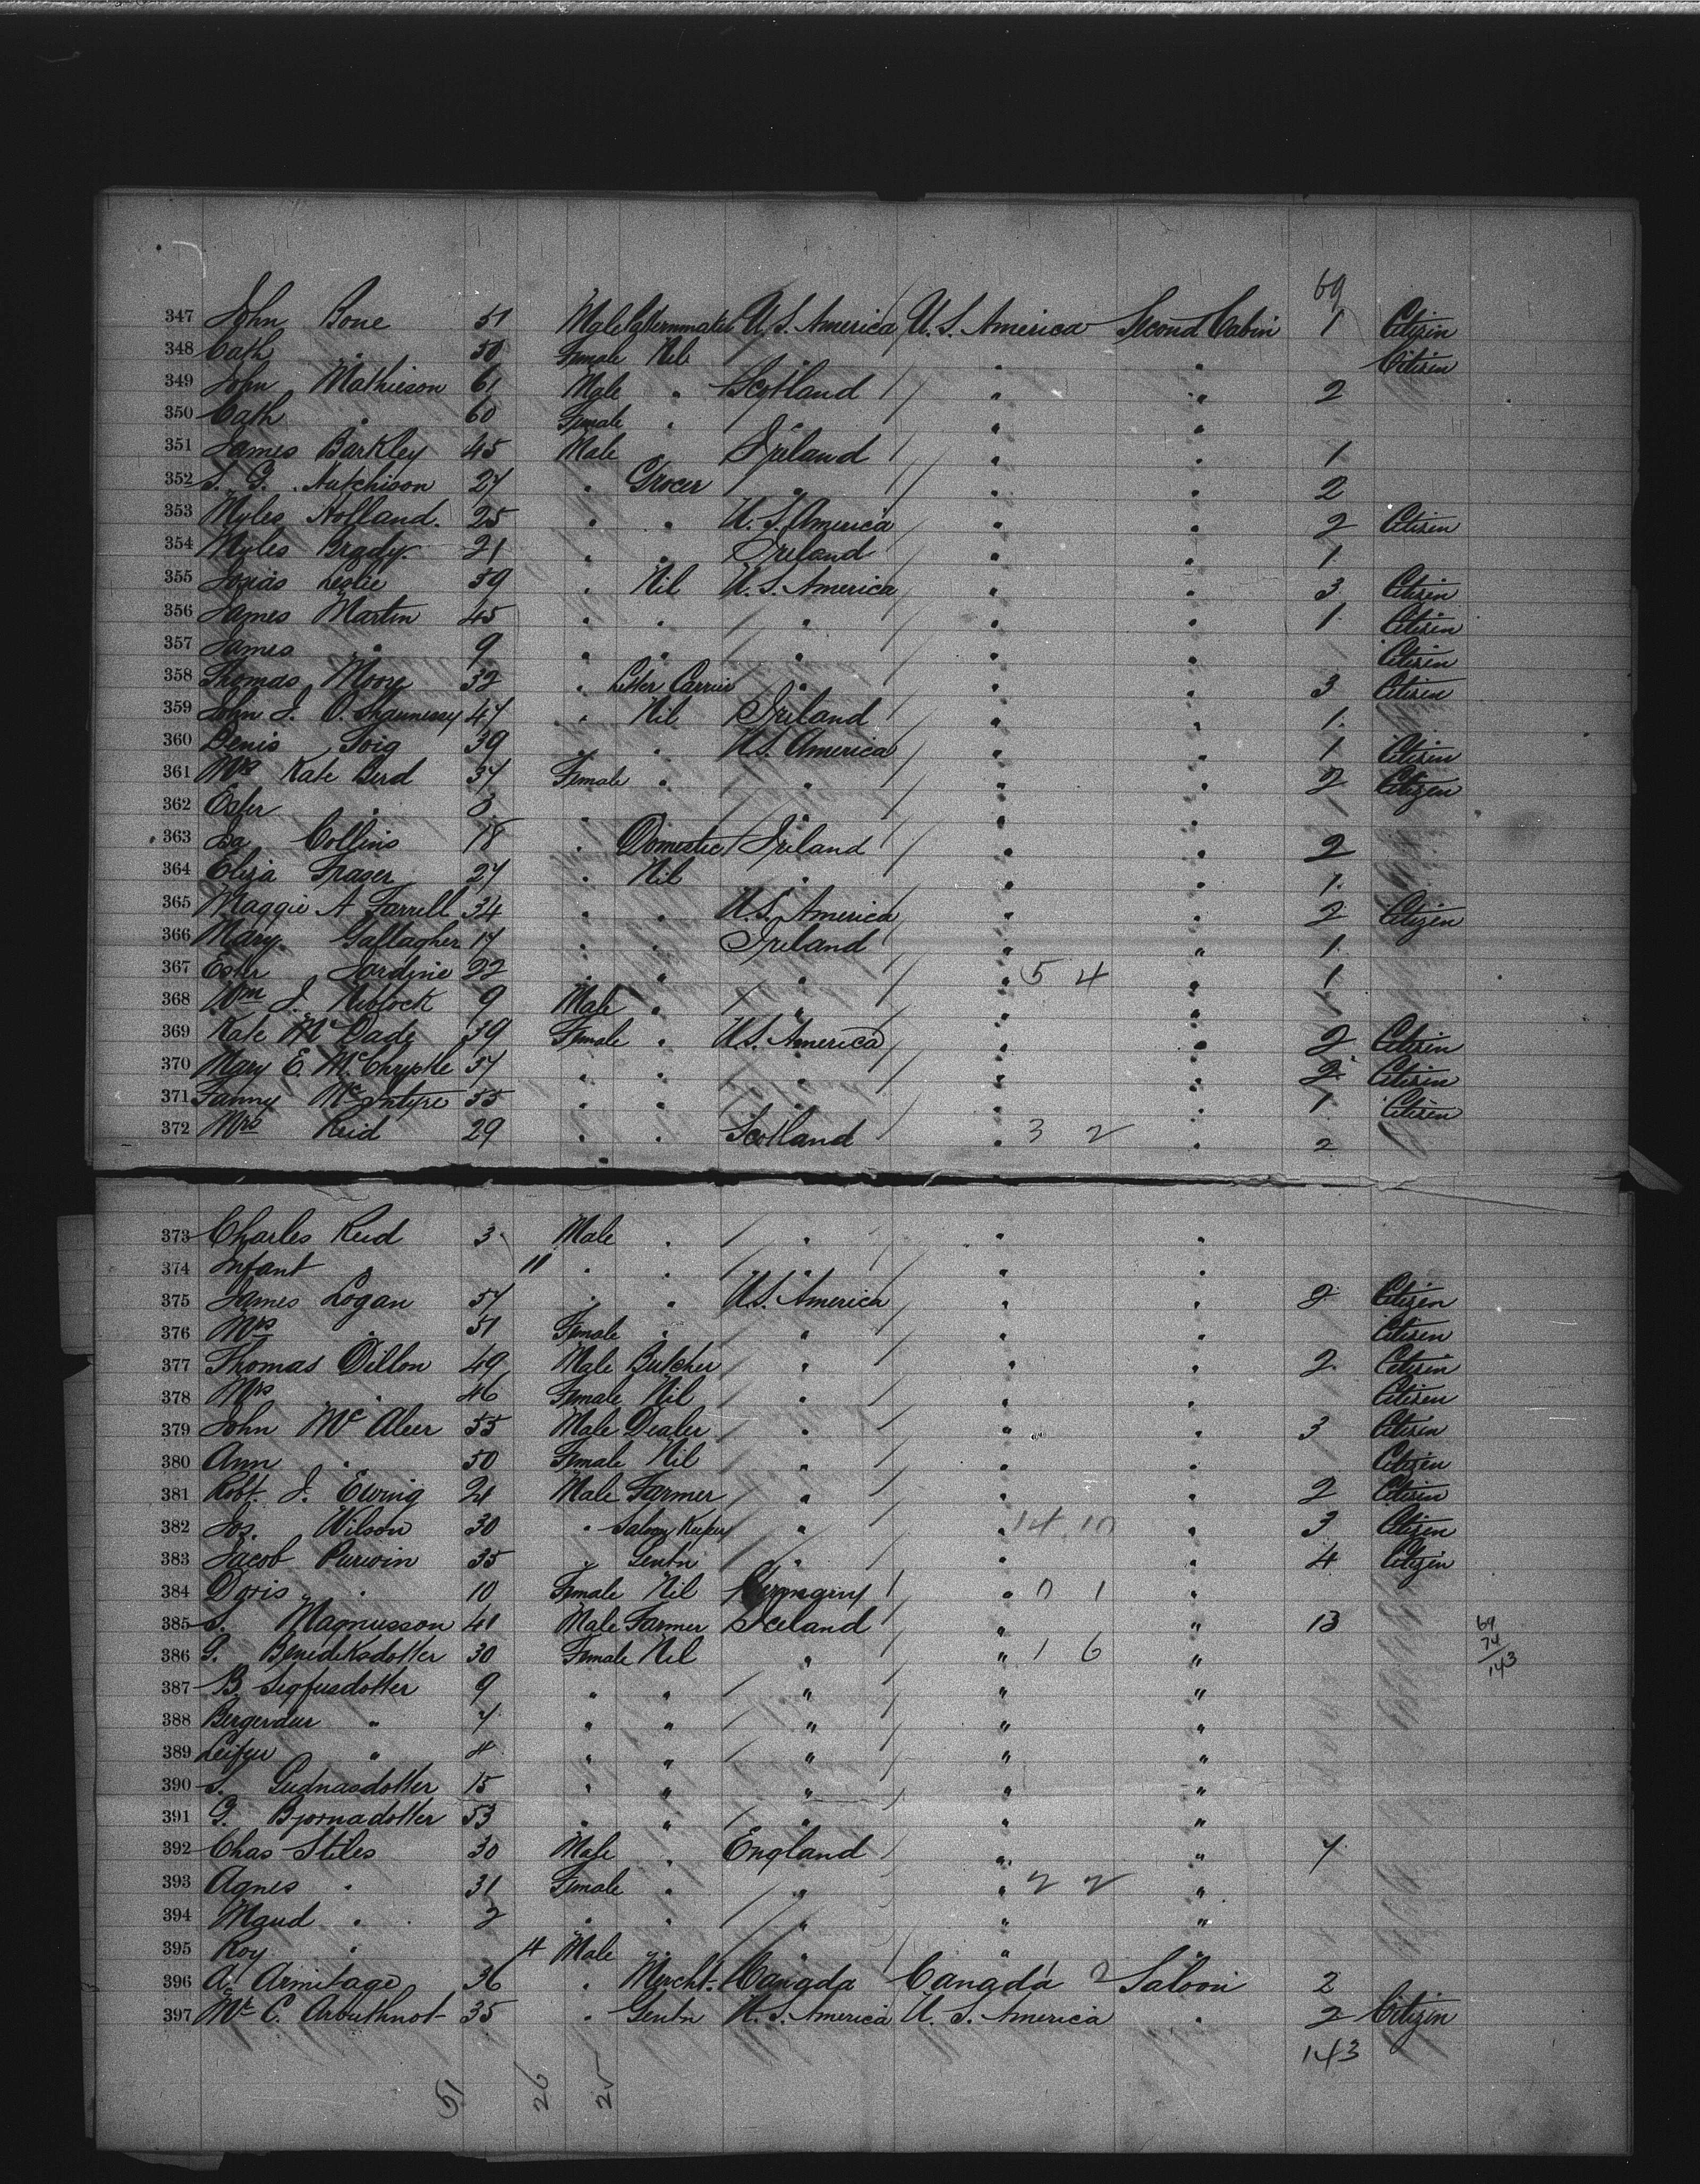 69
347 John Bone 51 Male Patternmaker U. S. America U. S. America Second Cabin 1 Citizen
348 Cath " 50 Female Nil " " " Citizen
349 John Mathieson 61 Male " Scotland " " 2
350 Cath " 60 Female " " " "
351 James Barkley 45 Male " Ireland " " 1
352 S. G. Hutchison 27 " Grocer " " " 2
353 Myles Holland. 25 " " U. S. America " " 2 Citizen
354 Myles Brady. 21 " " Ireland " " 1.
355 Josias Leslie 59 " Nil U. S. America " " 3 Citizen
356 James Martin 45 " " " " " 1. Citizen
357 James " 9 " " " " " Citizen
358 Thomas Moore 32 " Letter Carrier " " " 3 Citizen
359 John J. O. Shaunessy 47 " Nil Ireland " " 1.
360 Denis 39 " " U.S. America " " 1 Citizen
361 Mrs Kate Bird 37 Female " " " " 2 Citizen
362 Ester " 8 " " " " "
363 Collins 18 " Domestic Ireland " " 2
364 Eliza Fraser 27 " Nil " " " 1.
365 Maggie A Farrell 34 " " U.S. America " " 2 Citizen
366 Mary. Gallagher 17 " " Ireland " " 1.
367 Ester Jardine 22 " " " " 5 4 " 1
368 Wm J. Niblock 9 Male " " " "
369 Kate McDade 39 Female " U.S. America " " 2 Citizen
370 Mary E. McChrystle 37 " " " " " 2 Citizen
371 Fanny McIntyre 55 " " " " " 1 Citizen
372 Mrs Reid 29 " " Scotland " 3 2 " 2
373 Charles Reid 3 Male " " " "
374 Infant " 11 " " " " "
375 James Logan 57 " " U.S. America " " 2 Citizen
376 Mrs " 51 Female " " " " Citizen
377 Thomas Dillon 49 Male Butcher " " " 2. Citizen
378 Mrs " 46 Female Nil " " " Citizen
379 John McAleer 55 Male Dealer " " " 3 Citizen
380 Ann " 50 Female Nil " " " Citizen
381 Robt. J. Ewing 21 Male Farmer " " " 2 Citizen
382 Jos. Wilson 30 " Saloon Keeper " " 14 10 " 3 Citizen
383 Jacob Purwin 35 " Gentn " " " 4 Citizen
384 Doris " 10 Female Nil Germany " 0 1 "
385 S. Magnusson 41 Male Farmer Iceland " " 13
69
74
143
386 G. Benediksdotter 30 Female Nil " " 1 6 "
387 B. Sigfusdotter 9 " " " " "
388 Bergerdur " 7 " " " " "
389 Leifur " 4 " " " " "
390 S. Gudnasdotter 15 " " " " "
391 G. Bjornadotter 53 " " " " "
392 Chas Stiles 30 Male " England " " 7
393 Agnes " 31 Female " " " 2 2 "
394 Maud " 2 " " " " "
395 Roy " 4 Male " " " "
396 A. Armitage 36 " Mercht. Canada Canada 2 Saloon 2
397 Mr C. Arbuthnot 35 " Gentn U. S. America U. S. America " 2 Citizen
143
51 26 25